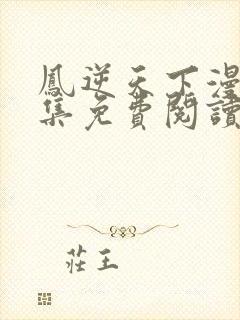 鳳逆天下漫
集免費閱讀
莊王